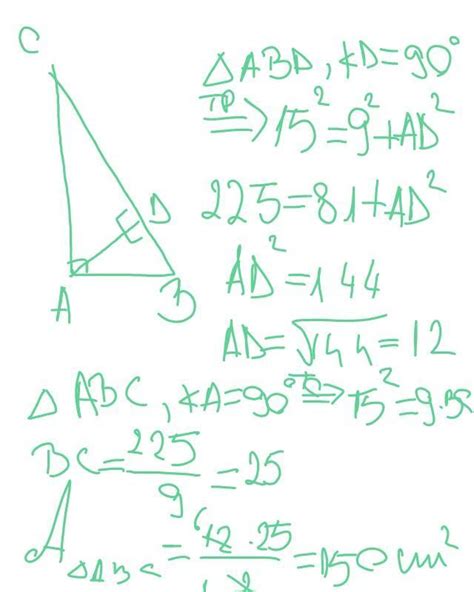 C
△ABD, ∢D=90°
TP
⟹ 15²=9²+AD²
D
225=81+AD²
A
B
AD²=144
AD=√144=12
△ABC, ∢A=90° TC ⟹ 15²=9·BC
BC=225/9=25
A△ABC = 12·25/2 = 150 cm²
6
1